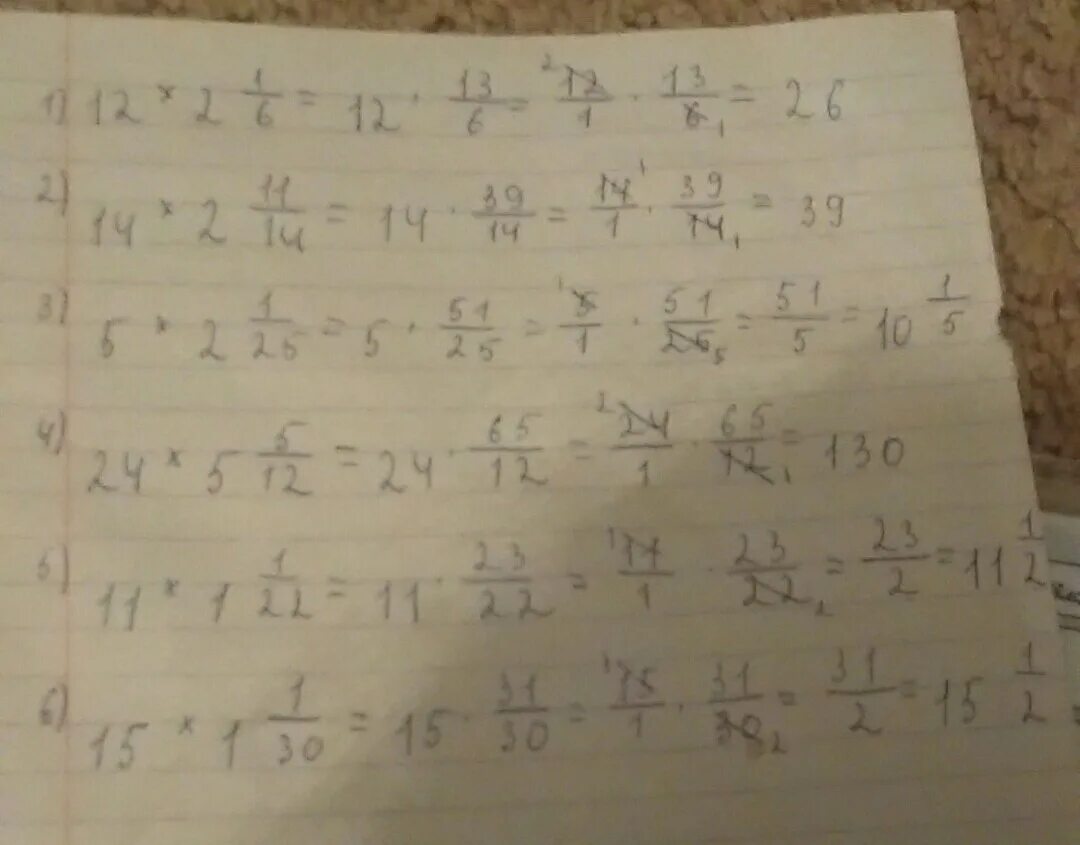 1) 12 × 2 1/6 = 12 · 13/6 = ² 12/1 · 13/6 ₁ = 26
2) 14 × 2 11/14 = 14 · 39/14 = 14/1 ¹ · 39/14 ₁ = 39
3) 5 × 2 1/25 = 5 · 51/25 = ¹ 5/1 · 51/25 ₅ = 51/5 = 10 1/5
4) 24 × 5 5/12 = 24 · 65/12 = ² 24/1 · 65/12 ₁ = 130
5) 11 × 1 1/22 = 11 · 23/22 = ¹ 11/1 · 23/22 ₂ = 23/2 = 11 1/2
6) 15 × 1 1/30 = 15 · 31/30 = ¹ 15/1 · 31/30 ₂ = 31/2 = 15 1/2